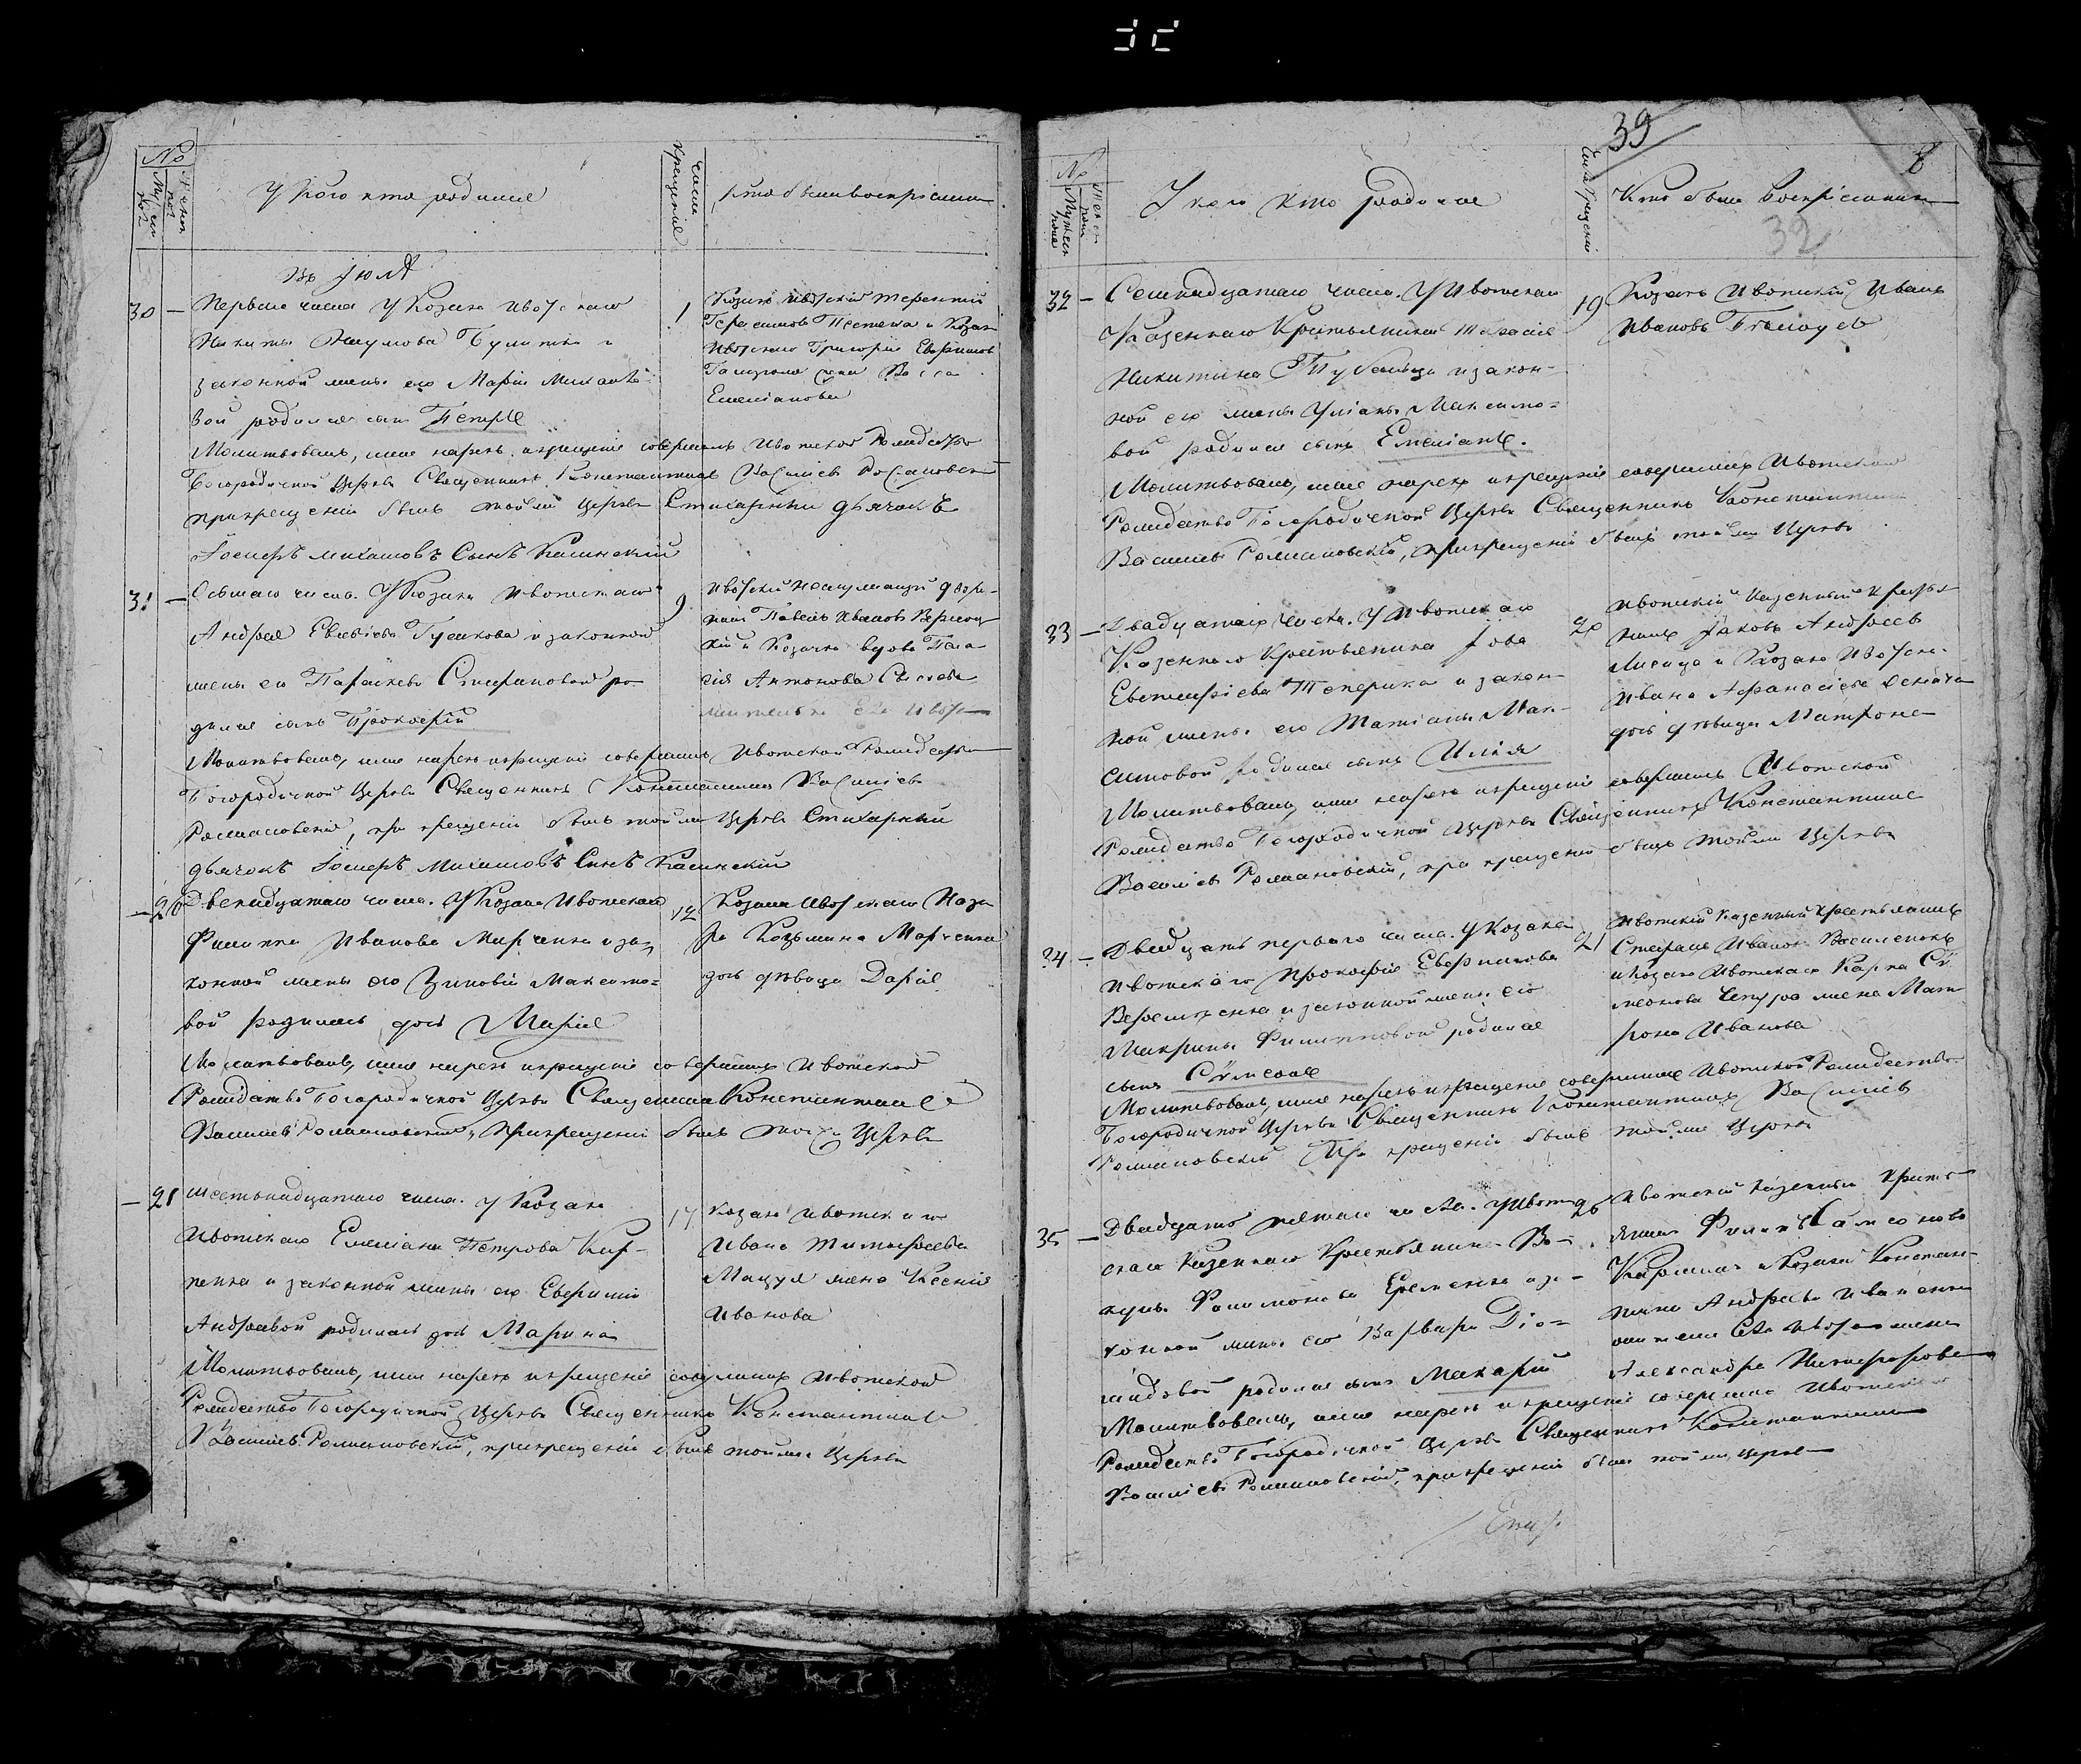 39
8
32
№
Мужеск пол
Женск пол
У кого кто родился
Число крещенія
Кто были воспріемники
Въ Іюлѣ
30 — Перваго числа У Козака Ивотскаго
Никиты Наумова
законной жены его Маріи Михайло-
вой родился сынъ Петръ
1
Козакъ Ивотскій Терентій
Герасимовъ и Козака
Ивотскаго Григорія Евфимова
жена
Емеліанова
Молитвовалъ, имя нарекъ и крещеніе совершилъ Ивотской Рождество
Богородичной Церкви Священникъ Константинъ Василіевъ Романовскій
при крещеніи былъ тойже Церкви Стихарный дьячокъ
Іосифъ Михайловъ Сынъ Касинскій
31 — числа. У Козака Ивотскаго
Андрея Евсѣіева Гусакова и законной
жены его Параскевы Стефановой ро-
дился сынъ Прокофій
9
Ивотскій дворя-
нинъ Павелъ Ивановъ
кій и Козачка вдова Пела
гія Антонова
Молитвовалъ, имя нарекъ и крещеніе совершилъ Ивотской Рождество
Богородичной Церкви Священникъ Константинъ Василіевъ
Романовскій, при крещеніи былъ тойже Церкви Стихарный
дьячокъ Іосифъ Михайловъ Сынъ Касинскій
— 20 Двенадцатаго числа. У Козака Ивотскаго
Филиппа Иванова Марченка и за-
конной жены его Зиновіи Максимо-
вой родилась дочь Марія
12
Козака Ивотскаго Наза
ра Козьмина Марченка
дочь дѣвица Дарія
Молитвовалъ, имя нарекъ и крещеніе совершилъ Ивотской
Рождество Богородичной Церкви Священникъ Константинъ
Василіевъ Романовскій, при крещеніи былъ тойже Церкви
— 21 Шестьнадцатаго числа. У Козака
Ивотскаго Емеліана Петрова Кар-
пенка и законной жены его Евфиміи
Андреевой родилась дочь Марина
17
Козака Ивотскаго
Ивана Тимофеева
Мацуя жена Ксенія
Иванова
Молитвовалъ, имя нарекъ и крещеніе совершилъ Ивотской
Рождество Богородичной Церкви Священникъ Константинъ
Василіевъ Романовскій, при крещеніи былъ тойже Церкви
№
Мужеск пола
Женск пола
У кого кто родился
Числа Крещеніи
Кто были Воспріемники
32 — Семнадцатаго числа. У Ивотскаго
Казеннаго Крестьянина Тарасія
Никитина и закон-
ной его жены Уліаны Максимо-
вой родился сынъ Емеліанъ.
19
Козакъ Ивотскій Иванъ
Ивановъ
Молитвовалъ, имя нарекъ и крещеніе совершилъ Ивотской
Рождество Богородичной Церкви Священникъ Константинъ
Василіевъ Романовскій, при крещеніи былъ тойже Церкви
33 — Двадцатаго числа. У Ивотскаго
Казеннаго Крестьянина Іова
Евстафіева и закон-
ной жены его Татіаны Мак-
симовой родился сынъ Илія
20
Ивотскій Казенный Крестья
нинъ Іаковъ Андреевъ
Лисица и Козака Ивотска.
Ивана Афанасіева
дочь дѣвица Матрона
Молитвовалъ, имя нарекъ и крещеніе совершилъ Ивотской
Рождество Богородичной Церкви Священникъ Константинъ
Василіевъ Романовскій, при крещеніи былъ тойже Церкви
34 — Двадцать перваго числа. У Козака
Ивотскаго Прокофія Евфимова
и законной жены его
Макрины Филипповой родился
сынъ Сѵмеонъ
21
Ивотскій Казенный Крестьянинъ
Стефанъ Ивановъ
и Козака Ивотскаго Карпа Сѵ
меонова жена Мат
рона Иванова
Молитвовалъ, имя нарекъ и крещеніе совершилъ Ивотской Рождество
Богородичной Церкви Священникъ Константинъ Василіевъ
Романовскій При крещеніи былъ тойже Церкви
35 — Двадцать пятаго числа. У Ивот
скаго Казеннаго Крестьянина
Филимонова Еременка и за-
конной жены его Варвары Діо-
мидовой родился сынъ Макарій
26
Ивотскій Казенный Кресть
янинъ Филипъ
и Козака Констан-
тина Андреева Иваненка
жена
Александра Никифорова
Молитвовалъ, имя нарекъ и крещеніе совершилъ Ивотской
Рождество Богородичной Церкви Священникъ Константинъ
Василіевъ Романовскій, при крещеніи былъ тойже Церкви